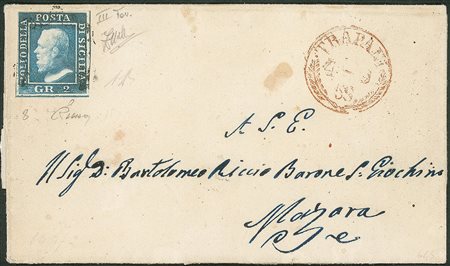 III Tav.
BOLLO DELLA POSTA DI SICILIA
GR 2
TRAPANI
59
A S. E.
Il Sig. D: Bartolomeo Riccio Barone S. Giochino
Mazara